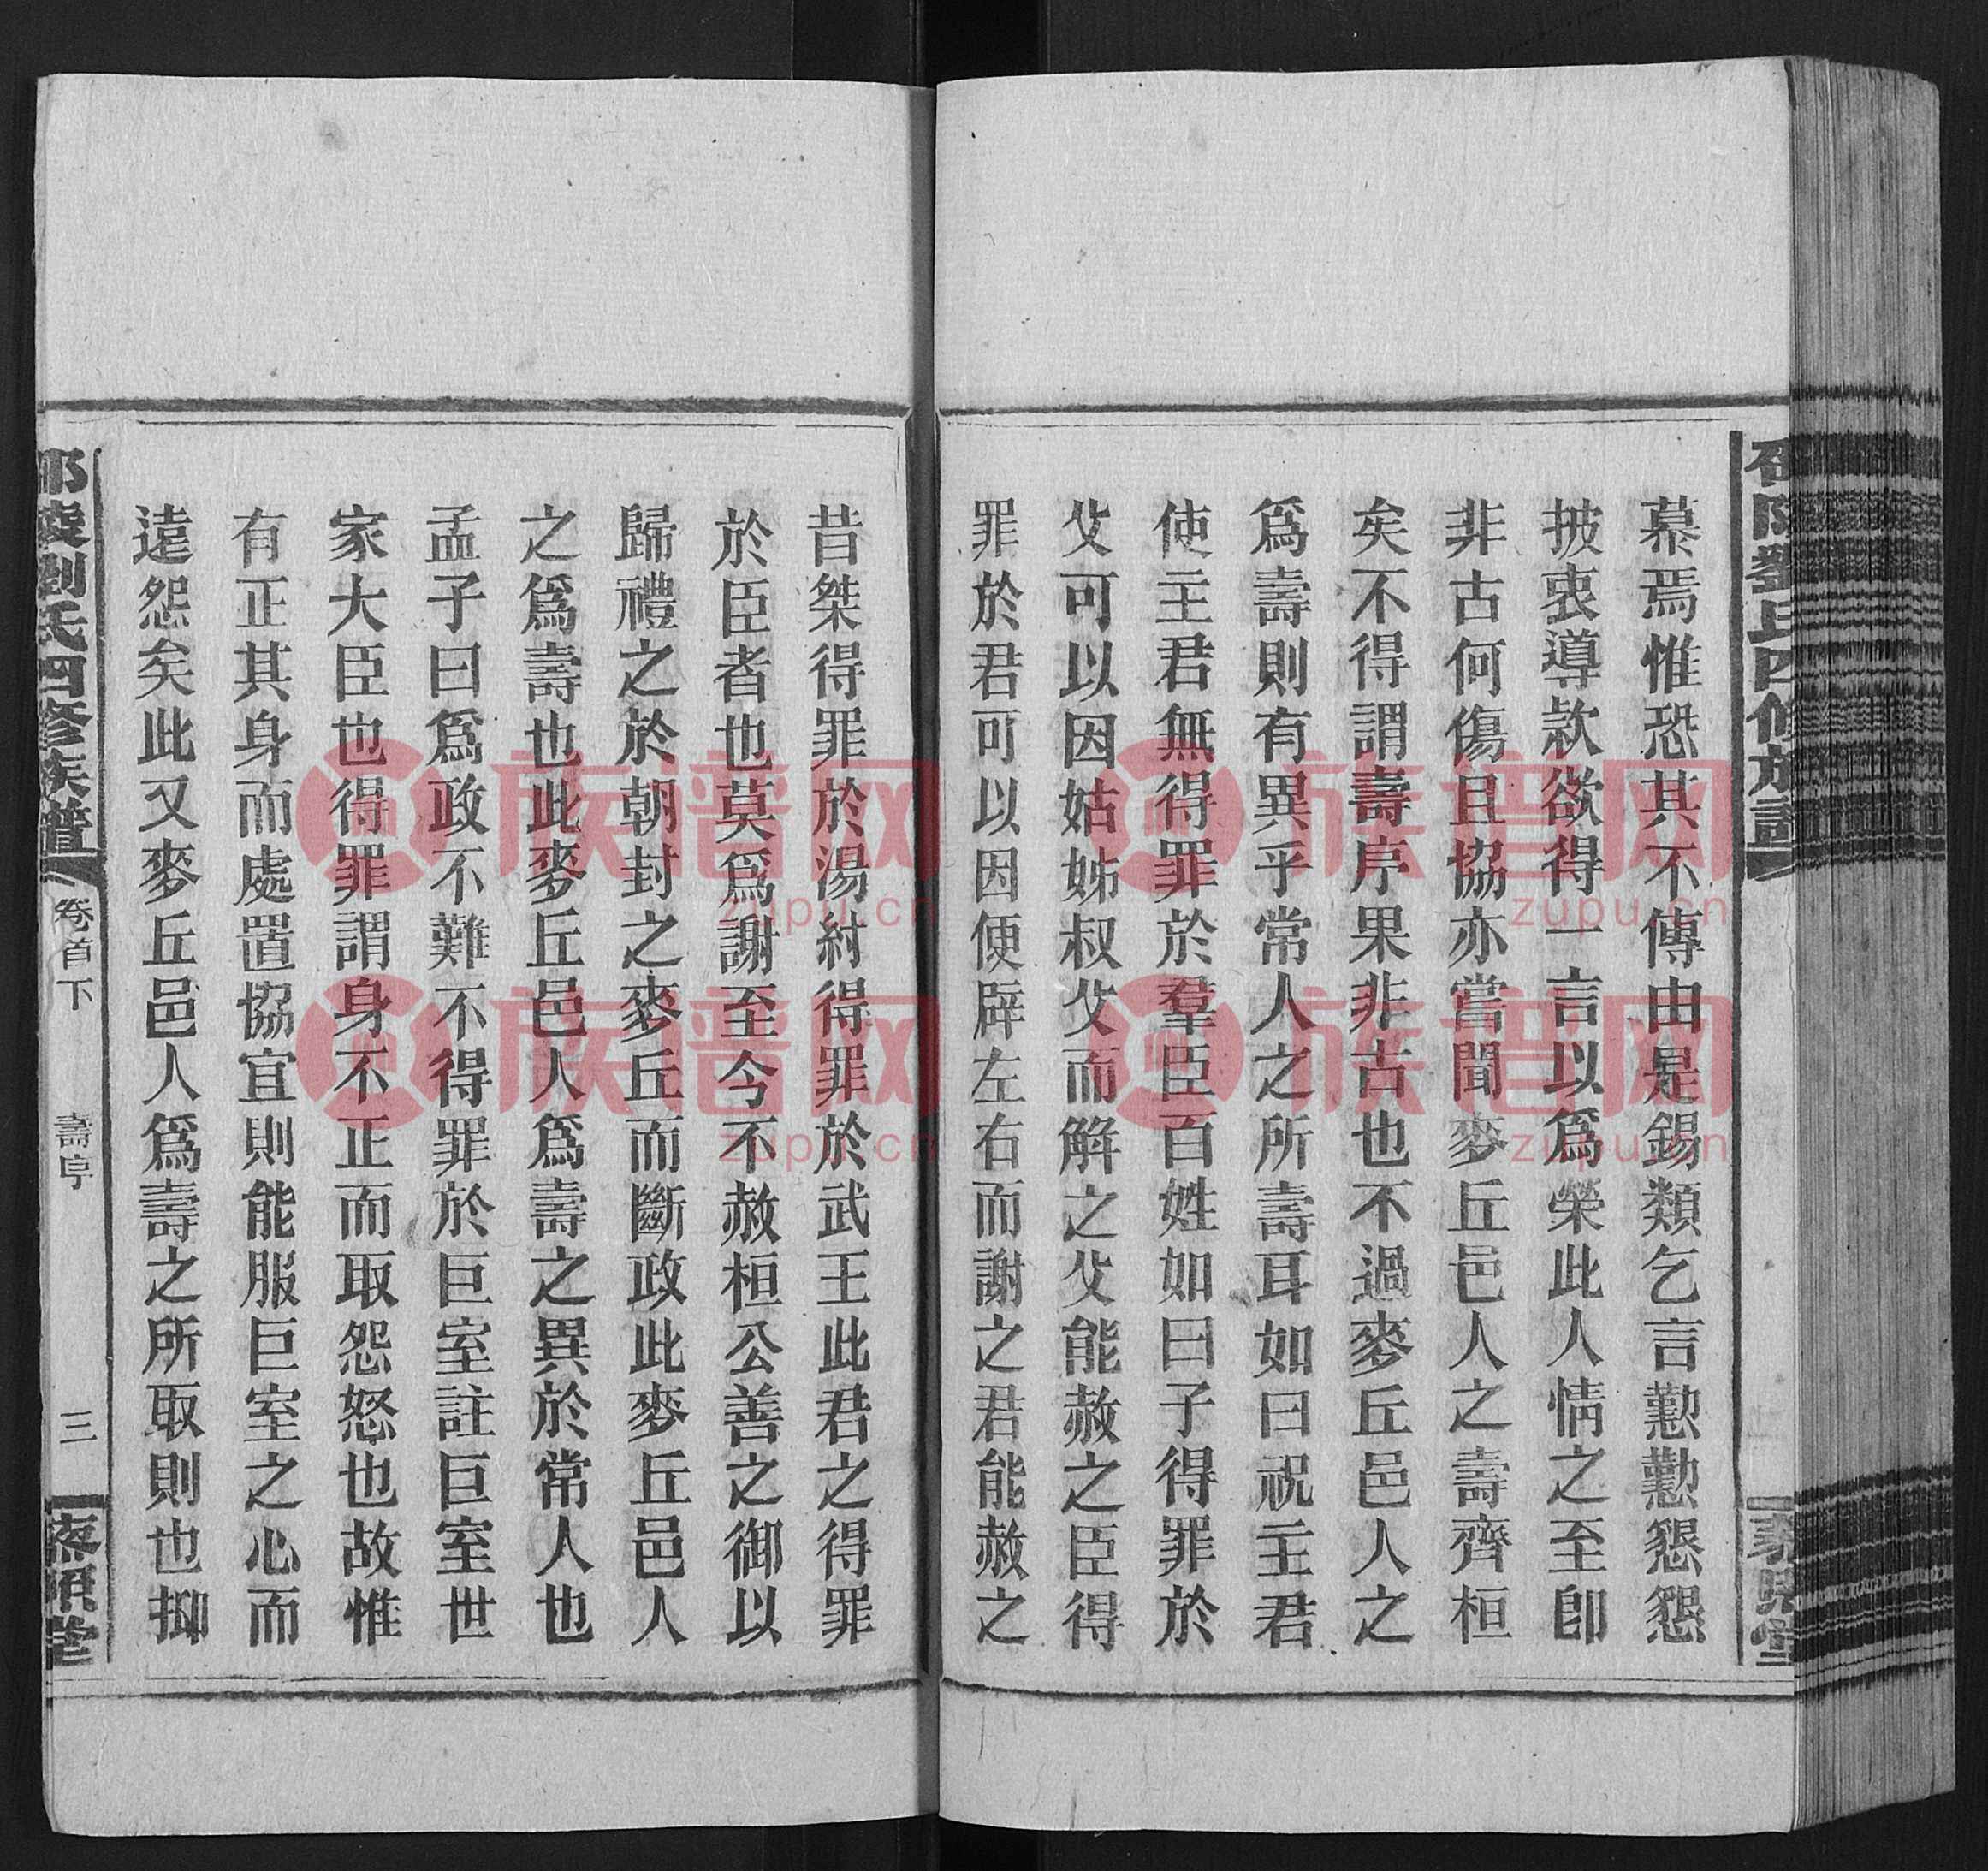 幕焉惟恐其不傳由是錫類乞言懃懃懇懇
披衷導款欲得一言以爲榮此人情之至卽
非古何傷且協亦嘗聞麥丘邑人之壽齊桓
矣不得謂壽序果非古也不過麥丘邑人之
爲壽則有異乎常人之所壽耳如曰祝主君
使主君無得罪於羣臣百姓如曰子得罪於
父可以因姑姊叔父而解之父能赦之臣得
罪於君可以因便辟左右而謝之君能赦之
昔桀得罪於湯紂得罪於武王此君之得罪
於臣者也莫爲謝至今不赦桓公善之御以
歸禮之於朝封之麥丘而斷政此麥丘邑人
之爲壽也此麥丘邑人爲壽之異於常人也
孟子曰爲政不難不得罪於巨室註巨室世
家大臣也得罪謂身不正而取怨怒也故惟
有正其身而處置協宜則能服巨室之心而
遠怨矣此又麥丘邑人爲壽之所取則也抑
邵陵劉氏四修族譜 卷首下 壽序 三 藜照堂
族谱网
zupu.cn
族谱网
zupu.cn
族谱网
zupu.cn
族谱网
zupu.cn